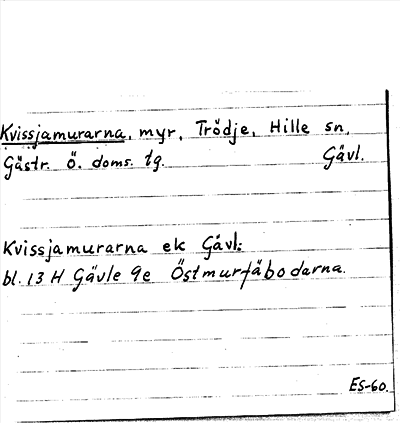 Kvissjamurarna, myr, Trödje, Hille sn,
Gästr. Ö. doms. tg. Gävl.
Kvissjamurarna ek Gävl:
bl. 13 H Gävle 9e Östmurfäbodarna.
ES-60.